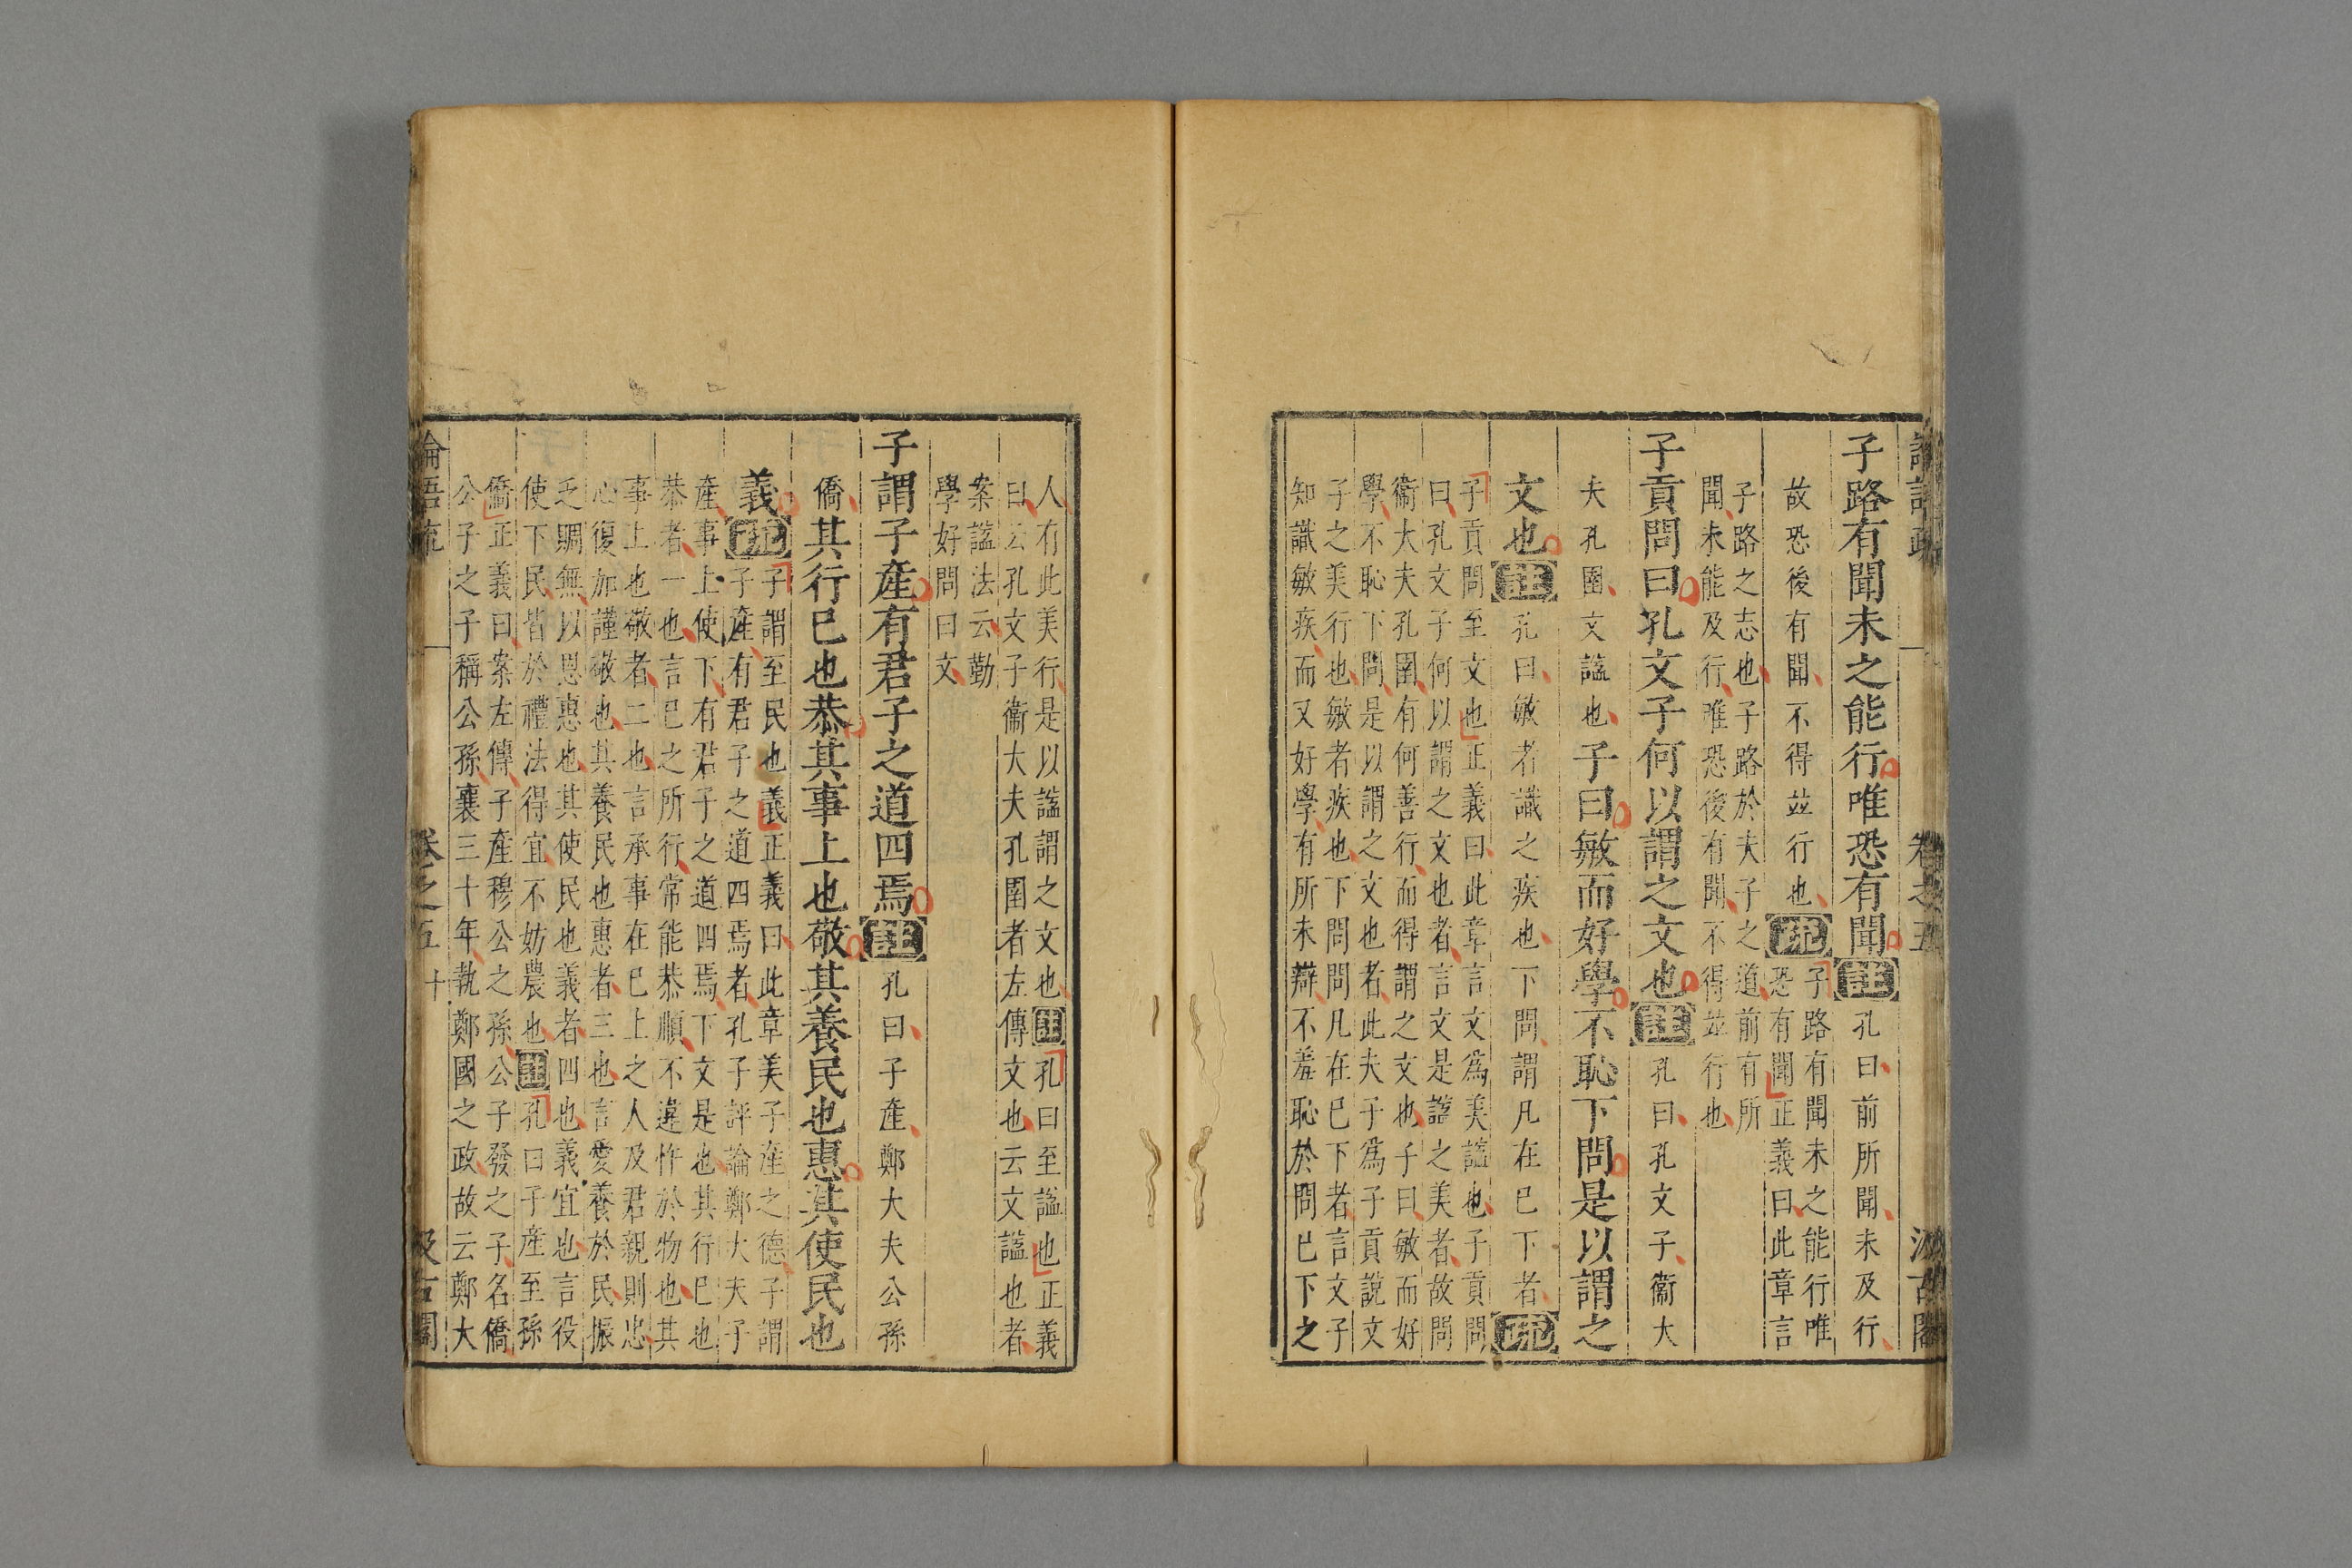 論語疏 卷之五 汲古閣
子路有聞未之能行唯恐有聞註孔曰前所聞未及行
故恐後有聞不得竝行也疏
子路有聞未之能行唯
恐有聞正義曰此章言
子路之志也子路於夫子之道前有所
聞未能及行唯恐後有聞不得竝行也
子貢問曰孔文子何以謂之文也註孔曰孔文子衞大
夫孔圉文謚也子曰敏而好學不恥下問是以謂之
文也註孔曰敏者識之疾也下問謂凡在已下者疏
子貢問至文也正義曰此章言文爲美謚也子貢問
曰孔文子何以謂之文也者言文是謚之美者故問
衞大夫孔圉有何善行而得謂之文也子曰敏而好
學不恥下問是以謂之文也者此夫子爲子貢說文
子之美行也敏者疾也下問問凡在已下者言文子
知識敏疾而又好學有所未辯不羞恥於問已下之
人有此美行是以謚謂之文也註孔曰至謚也正義
曰云孔文子衞大夫孔圉者左傳文也云文謚也者
案謚法云勤
學好問曰文
子謂子產有君子之道四焉註孔曰子產鄭大夫公孫
僑其行已也恭其事上也敬其養民也惠其使民也
義疏
子謂至民也義正義曰此章美子產之德子謂
子產有君子之道四焉者孔子評論鄭大夫子
產事上使下有君子之道四焉下文是也其行已也
恭者一也言已之所行常能恭順不違忤於物也其
事上也敬者二也言承事在已上之人及君親則忠
心復加謹敬也其養民也惠者三也言愛養於民振
乏賙無以恩惠也其使民也義者四也義宜也言役
使下民皆於禮法得宜不妨農也註孔曰子產至孫
僑正義曰案左傳子產穆公之孫公子發之子名僑
公子之子稱公孫襄三十年執鄭國之政故云鄭大
論語疏 卷之五 十 汲古閣